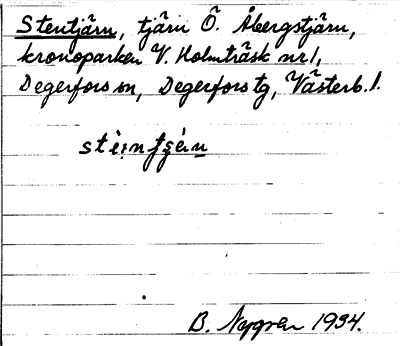 Stentjärn, tjärn Ö. Åbergstjärn,
kronoparken V. Holmträsk nr 1,
Degerfors sn, Degerfors tg, Västerb. l.
B. Nygren 1934.